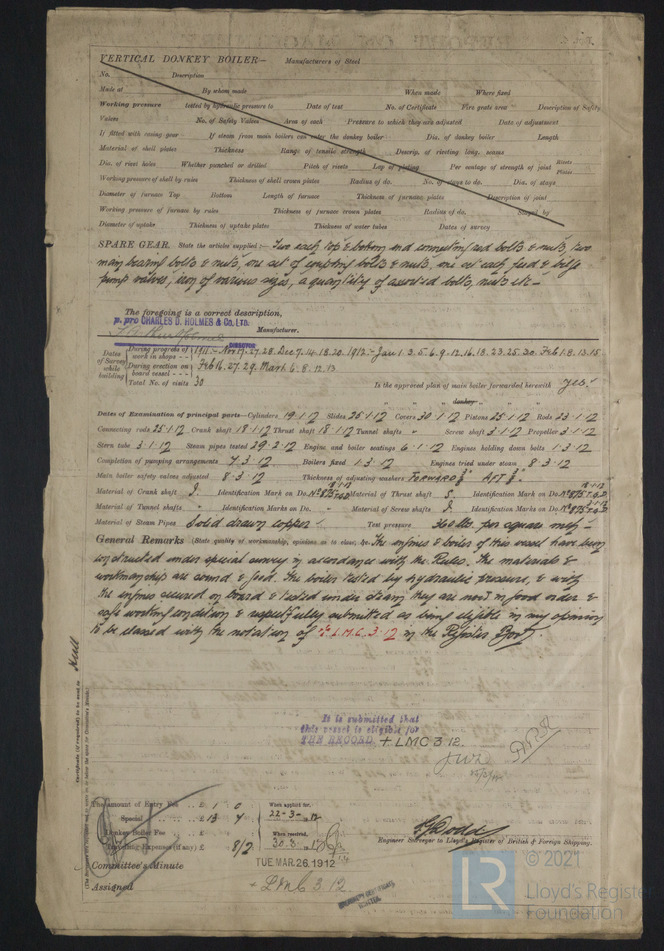 VERTICAL DONKEY BOILER— Manufacturers of Steel
No. Description
Made at By whom made When made Where fixed
Working pressure tested by hydraulic pressure to Date of test No. of Certificate Fire grate area Description of Safety
Valves No. of Safety Valves Area of each Pressure to which they are adjusted Date of adjustment
If fitted with easing gear If steam from main boilers can enter the donkey boiler Dia. of donkey boiler Length
Material of shell plates Thickness Range of tensile strength Descrip. of riveting long. seams
Dia. of rivet holes Whether punched or drilled Pitch of rivets Lap of plating Per centage of strength of joint Rivets Plates
Working pressure of shell by rules Thickness of shell crown plates Radius of do. No. of stays to do. Dia. of stays
Diameter of furnace Top Bottom Length of furnace Thickness of furnace plates Description of joint
Working pressure of furnace by rules Thickness of furnace crown plates Radius of do. Stayed by
Diameter of uptake Thickness of uptake plates Thickness of water tubes Dates of survey
SPARE GEAR. State the articles supplied:— Two each top & bottom end connecting rod bolts & nuts, two
main bearing bolts & nuts, one set of coupling bolts & nuts, one set each feed & bilge
pump valves, iron of various sizes, a quantity of assorted bolts, nuts etc —
The foregoing is a correct description,
p. pro CHARLES D. HOLMES & Co. LTD.
Manufacturer.
DIRECTOR
Dates of Survey while building
During progress of work in shops - - 1911:- Nov 17. 27. 28. Dec 7. 14. 18. 20. 1912:- Jan 1. 3. 5. 6. 9. 12. 16. 18. 23. 25. 30. Feb 1. 8. 13. 15
During erection on board vessel - - - Feb 16. 27. 29. Mar 1. 6. 8. 12. 13
Total No. of visits 30
Is the approved plan of main boiler forwarded herewith yes.
" " " donkey " " "
Dates of Examination of principal parts—Cylinders 19.1.12 Slides 25.1.12 Covers 30.1.12 Pistons 25.1.12 Rods 23.1.12
Connecting rods 25.1.12 Crank shaft 18.1.12 Thrust shaft 18.1.12 Tunnel shafts " Screw shaft 3.1.12 Propeller 3.1.12
Stern tube 3.1.12 Steam pipes tested 29.2.12 Engine and boiler seatings 6.1.12 Engines holding down bolts 1.3.12
Completion of pumping arrangements 7.3.12 Boilers fixed 1.3.12 Engines tried under steam 8.3.12
Main boiler safety valves adjusted 8.3.12 Thickness of adjusting washers FORWARD AFT
Material of Crank shaft Identification Mark on Do. Material of Thrust shaft S. Identification Mark on Do.
Material of Tunnel shafts " Identification Marks on Do. " Material of Screw shafts Identification Marks on Do.
Material of Steam Pipes Solid drawn copper Test pressure 360 lbs. per square inch —
General Remarks (State quality of workmanship, opinions as to class, &c. The engines & boiler of this vessel have been
constructed under special survey in accordance with the Rules. The materials &
workmanship are sound & good. The boiler tested by hydraulic pressure, & with
the engines secured on board & tested under steam they are now in good order &
safe working condition & respectfully submitted as being eligible in my opinion
to be classed with the notation of + L.M.C. 3.12 in the Register Book.
Certificate (if required) to be sent to Hull
It is submitted that
this vessel is eligible for
THE RECORD + LMC 3.12.
The amount of Entry Fee .. £ 1 : 0
When applied for,
Special .. .. £ 13 : 4
22-3-12
Donkey Boiler Fee .. .. £
When received,
Travelling Expenses (if any) £
8/2
30.3.12
Engineer Surveyor to Lloyd's Register of British & Foreign Shipping.
Committee's Minute
TUE. MAR. 26. 1912
Assigned
+ LMC 3.12
© 2021
LR
Lloyd's Register
Foundation